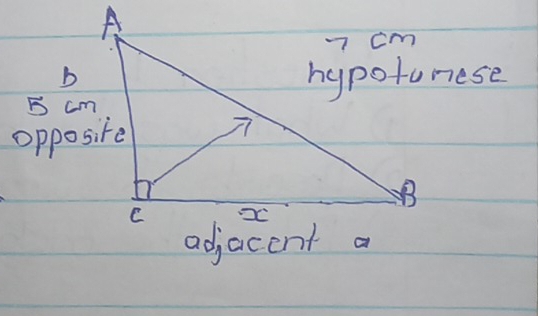 A
7 cm
hypotunese
b
5 cm
opposite
C
x
B
adjacent a